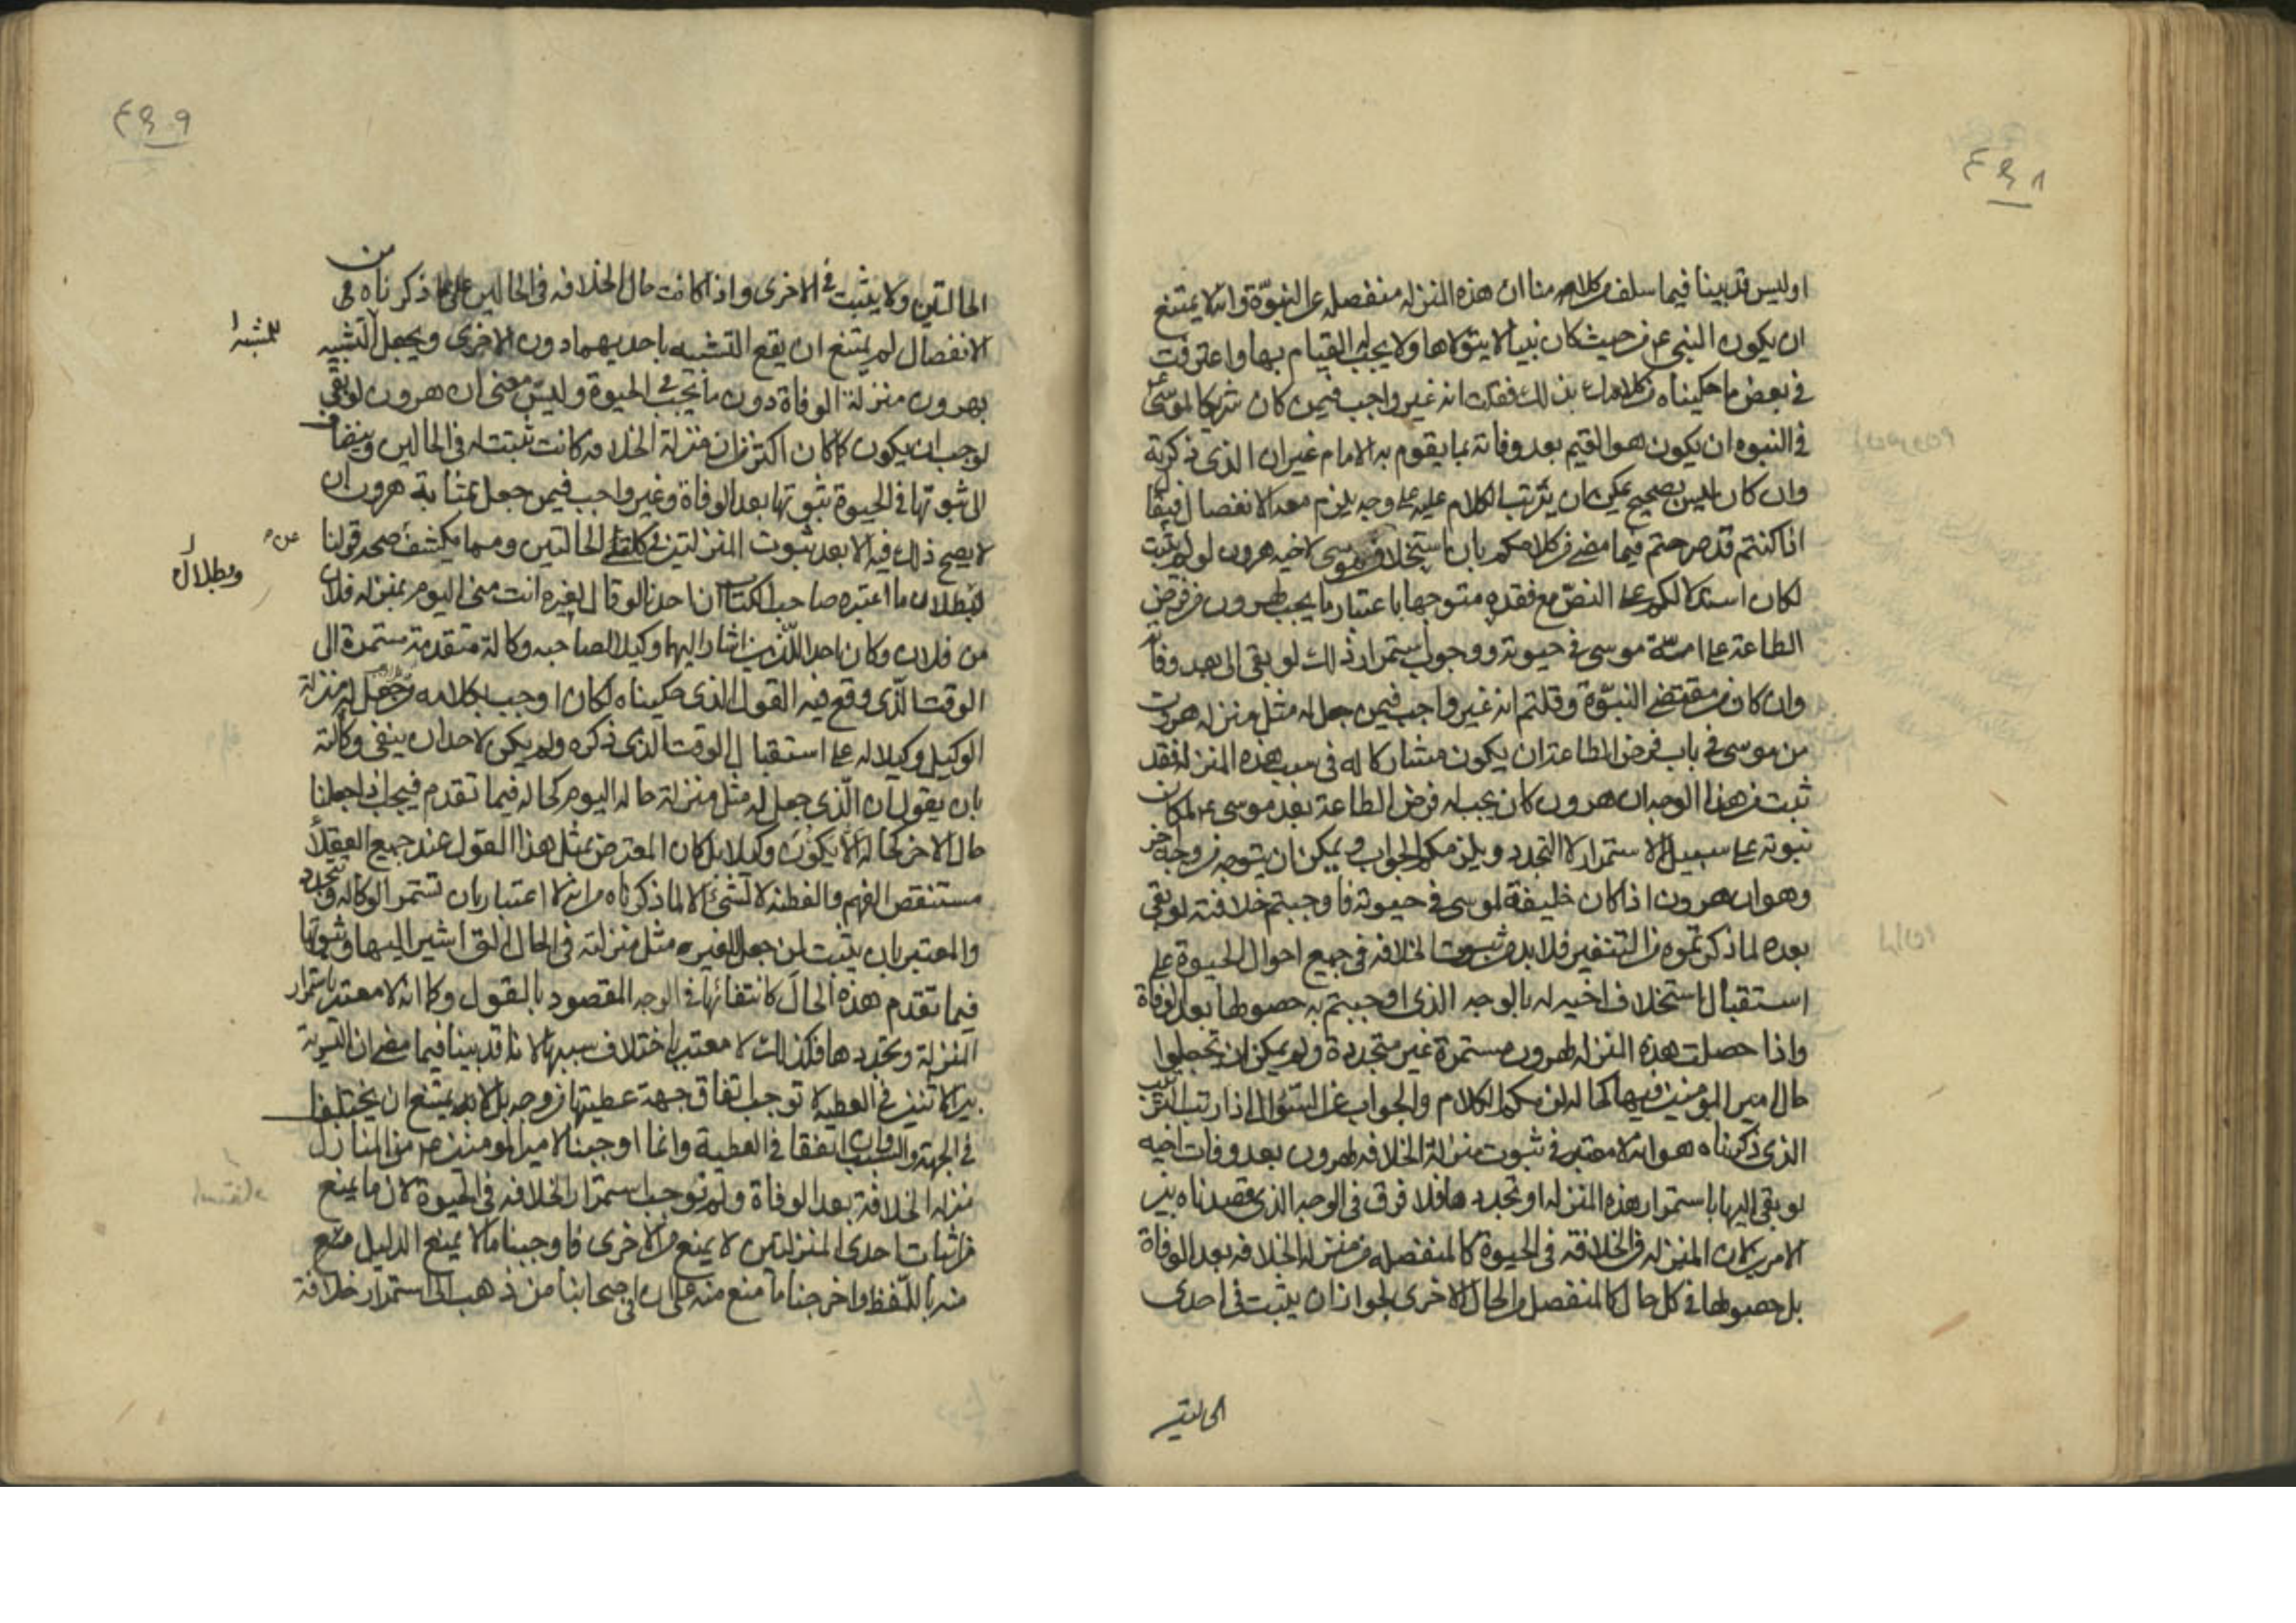 ٤٩٨
اوليس قد بينا فيما سلف من كلامنا ان هذه المنزله منفصله عن النبوّة وانه لا يمتنع
ان يكون النبي ع من حيث كان نبيا لا يتولاها ولا يجب له القيام بها واعترفت
في بعض ما حكيناه من كلامك بذلك فقلت انه غير واجب فيمن كان شريكا لموسى ع
في النبوه ان يكون هو القيم بعد وفاته بما يقوم به الامام غير ان الذي ذكرته
وان كان ليس بصحيح يمكن ان يترتب الكلام عليه على وجه يلزم معه الانفصال فيقال
اذا كنتم قد صرحتم فيما مضى من كلامكم بان استخلاف موسى لاخيه هرون لو لم يثبت
لكان استدلالكم على النص مع فقده متوجها باعتبار ما يجب لهرون من فرض
الطاعة على امة موسى في حيوته ووجوب استمرار ذلك لو بقى الى بعد وفاته
وان كان من مقتضى النبوّة وقلتم انه غير واجب فيمن جعل له مثل منزله هرون
من موسى في باب فرض الطاعة ان يكون مشاركا له في سبب هذه المنزله فقد
ثبت من هذا الوجه ان هرون كان يجب له فرض الطاعة بعد موسى ع لمكان
نبوته على سبيل الاستمرار لا التجدد ويلزمكم الجواب ويمكن ان يتوجه من وجه اخر
وهو ان هرون اذا كان خليفة لموسى في حيوته فاوجبتم خلافته لو بقى
بعده لما ذكرتموه من التنفير فلا بد من ثبوت الخلافه في جميع احوال الحيوة على
استقبال استخلاف اخيه له بالوجه الذي اوجبتم به حصولها بعد الوفاة
واذا حصلت هذه المنزله لهرون مستمرة غير متجددة ولم يمكن ان تجعلوا
حال امير المؤمنين فيها كحاله لزمكم الكلام والجواب عن السؤال اذا رتب الترتيب
الذي ذكرناه هو انه لا معتبر في ثبوت منزلة الخلافه لهرون بعد وفات اخيه
لو بقى اليها باستمرار هذه المنزله او تجددها فلا فرق في الوجه الذي قصدناه بين
الامرين لان المنزله في الخلافة في الحيوة كالمنفصله من منزله الخلافه بعد الوفاة
بل حصولها في كل حال كالمنفصل من الحال الاخرى لجواز ان يثبت في احدى
الحالتين
٤٩٩
الحالتين ولا يثبت في الاخرى واذا كانت حال الخلافه في الحالين على ما ذكرناه من
الانفصال لم يمتنع ان يقع التشبيه باحديهما دون الاخرى ويجعل التشبيه
للمشبه
بهرون منزلة الوفاة دون ما يجب في الحيوة وليس معنى ان هرون لو بقى
لوجب ان يكون كما كان اكثر من ان منزلة الخلافه كانت تثبت له في الحالين وينضاف
الى ثبوتها في الحيوة ثبوتها بعد الوفاة وغير واجب فيمن جعل بمثابة هرون ان
لا يصح ذلك فيه الا بعد ثبوت المنزلتين في كلتى الحالتين ومما يكشف عن صحة قولنا
وبطلان
ما اعتبره صاحب الكتاب ان احدنا لو قال لغيره انت مني اليوم بمنزله فلان
من فلان وكان احد اللّذين اشار اليهما وكيلا لصاحبه وكالة متقدمة مستمرة الى
الوقت الذي وقع فيه القول الذي حكيناه لكان اوجب بكلامه وجعل له منزلة
الوكيل وكيلا له على استقبال الوقت الذي ذكره ولم يكن لاحد ان ينفى وكالته
بان يقول ان الّذي جعل له مثل منزلة حاله اليوم كحاله فيما تقدم فيجب اذا جعلنا
حال الاخر كحاله الا يكون وكيلا بل كان المعترض بمثل هذا القول عند جميع العقلا
مستنقص الفهم والفطنه لا لشئ الا لما ذكرناه من انه لا اعتبار بان تستمر الوكاله وتتجدد
والمعتبر بان يثبت لمن جعل لغيره مثل منزلته في الحال التي اشير اليها وثبوتها
فيما تقدم هذه الحال كانتفائها في الوجه المقصود بالقول وكما انه لا معتبر باستمرار
المنزلة وتجددها فكذلك لا معتبر باختلاف سببها لانا قد بينا فيما مضى ان التسوية
بين الاثنين في العطية لا توجب اتفاق جهة عطيتهما من وجه بل لا يمتنع ان يختلفا
في الجهة والسبب وان اتفقا في العطية وانما اوجبنا لامير المؤمنين ع من المنازل
منزلة الخلافة بعد الوفاة ولم نوجب استمرار الخلافه في الحيوة لان ما يمنع
من اثبات احدى المنزلتين لا يمنع من الاخرى فاوجبنا ما لا يمنع الدليل منه
باللّفظ واخرجنا ما منع منه على ان في اصحابنا من ذهب الى استمرار خلافة